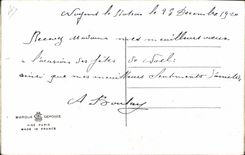 Nogent le Rotrou le 23 Décembre 1920
Recevez Madame mes meilleurs vœux
à l'occasion des fêtes de Noël
ainsi que mes meilleurs sentiments d'amitié
A Boulay
MARQUE DEPOSEE
PARIS
MADE IN FRANCE